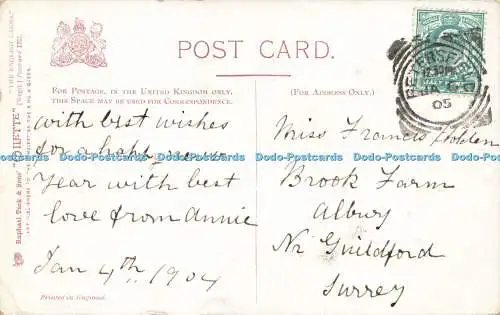 POST CARD.
FOR POSTAGE, IN THE UNITED KINGDOM ONLY,
THIS SPACE MAY BE USED FOR CORRESPONDENCE.
(FOR ADDRESS ONLY.)
with best wishes
for a happy new
Year with best
love from Annie
Jan 4th 1904
Printed in England.
Miss Francis
Brook Farm
Albury
Nr Guildford
Surrey
Raphael Tuck & Sons'
05
Dodo-Postcards Dodo-Postcards Dodo-Postcards Dodo-Postcards Dodo-Postcards